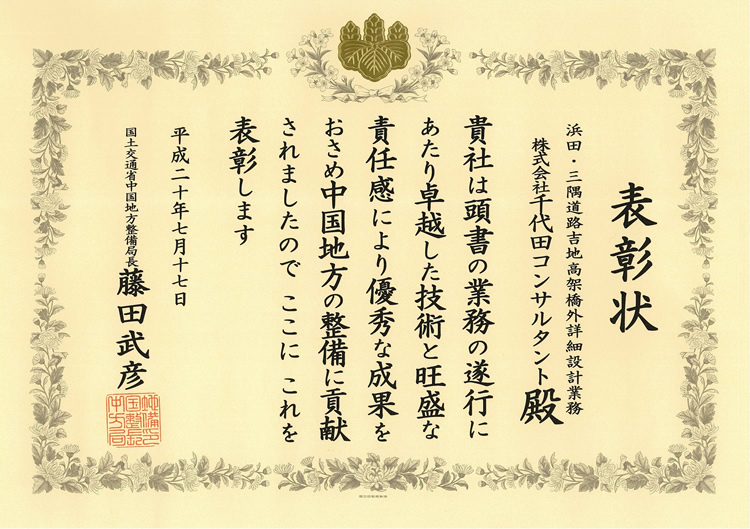 表彰状
浜田・三隅道路吉地高架橋外詳細設計業務
株式会社千代田コンサルタント 殿
貴社は頭書の業務の遂行に
あたり卓越した技術と旺盛な
責任感により優秀な成果を
おさめ中国地方の整備に貢献
されましたので ここに これを
表彰します
平成二十年七月十七日
国土交通省中国地方整備局長 藤田武彦